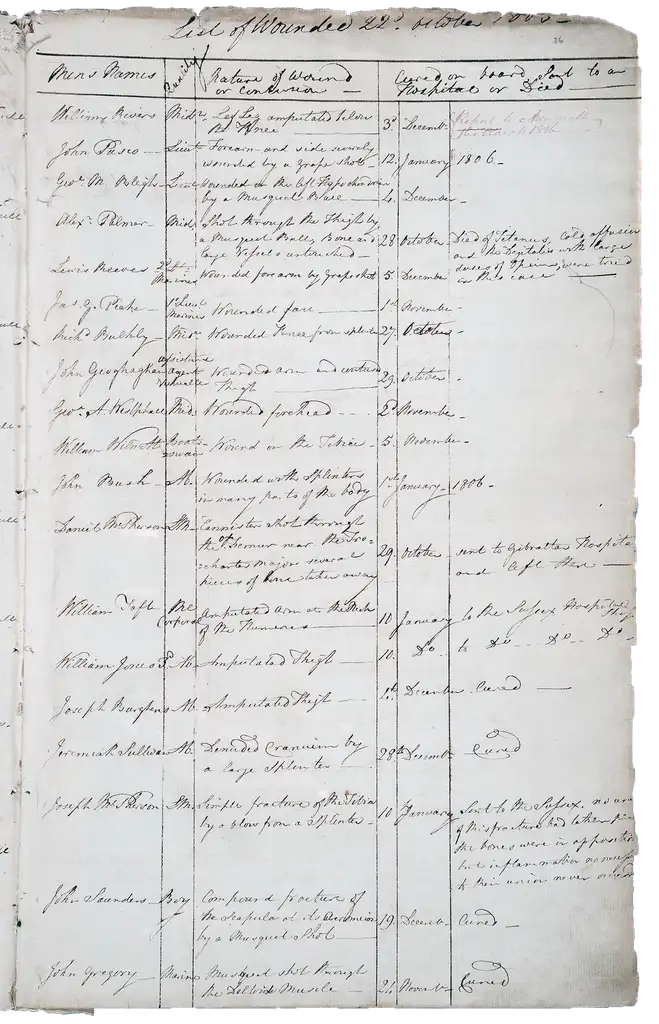 List of Wounded 22d October 1805
26
Mens Names Quality Nature of Wound or Contusion Cured on board, Sent to an Hospital or Died
William Rivers Midn. Left Leg amputated below the Knee 3d. Decembr.
John Pasco Lieut. Forearm and side severely wounded by a grape shot 12. January 1806
Geo. M. Bligh Lieut. Wounded in the left Hypochondrium by a Musquet Ball 4. December
Alexr. Palmer Mid. Shot through the Thigh by a Musquet Ball, Bone and large Vessels untouched 28 October Died of Tetanus, cold affusion and the Digitalis with large doses of Opium, were tried in this case
Lewis Reeves 2d. Lieut. Marines Wounded forearm by Grape shot 5. December
Jas. G. Peake 1st. Lieut. Marines Wounded face 1st. November
Richd. Bulkly Mid. Wounded Knee from splinter 27. October
John Geoghaghan Assistant agent victualler Wounded arm and contused Thigh 29. October
Geo. A. Westphall Mid. Wounded forehead 2d. November
William Wilmott Boatswain Wound on the Tibiae 5. November
John Bush Ab. Wounded with Splinters in many parts of the body 1st. January 1806
Daniel McPherson Cannister shot through the Femur near the Trochanter major several pieces of bone taken away 29. October sent to Gibraltar Hospital and left there
William Taft Corporal Amputated arm at the Neck of the Humerus 10 January to the Sussex Hospital
William Jones Ab. Amputated Thigh 10. Do. to Do. Do. Do.
Joseph Burghen Ab. Amputated Thigh 4th December Cured
Jeremiah Sullivan Ab. Denuded Cranium by a large Splinter 28th Decembr. Cured
Joseph McPherson Simple fracture of the Tibia by a blow from a Splinter 10 January Sent to the Sussex. no union of this fracture had taken place the bones were in apposition but inflammation necessary to their union never occurred
John Saunders Boy Compound fracture of the Scapula at its Acromion by a Musquet Shot 19. Decembr. Cured
John Gregory Marine Musquet shot through the Deltoid Muscle 24 Novembr. Cured